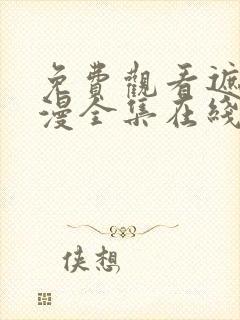 免費觀看遮
漫全集在綫
侠想